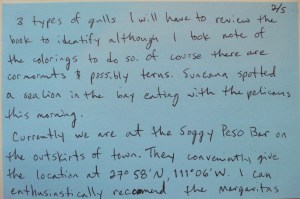 2/5
3 types of gulls I will have to review the
book to identify although I took note of
the colorings to do so. Of course there are
cormorants & possibly terns. Suncana spotted
a sealion in the bay eating with the pelicans
this morning.
Currently we are at the Soggy Peso Bar on
the outskirts of town. They conveniently give
the location at 27° 58'N, 111° 06'W. I can
enthusiastically recommend the margaritas